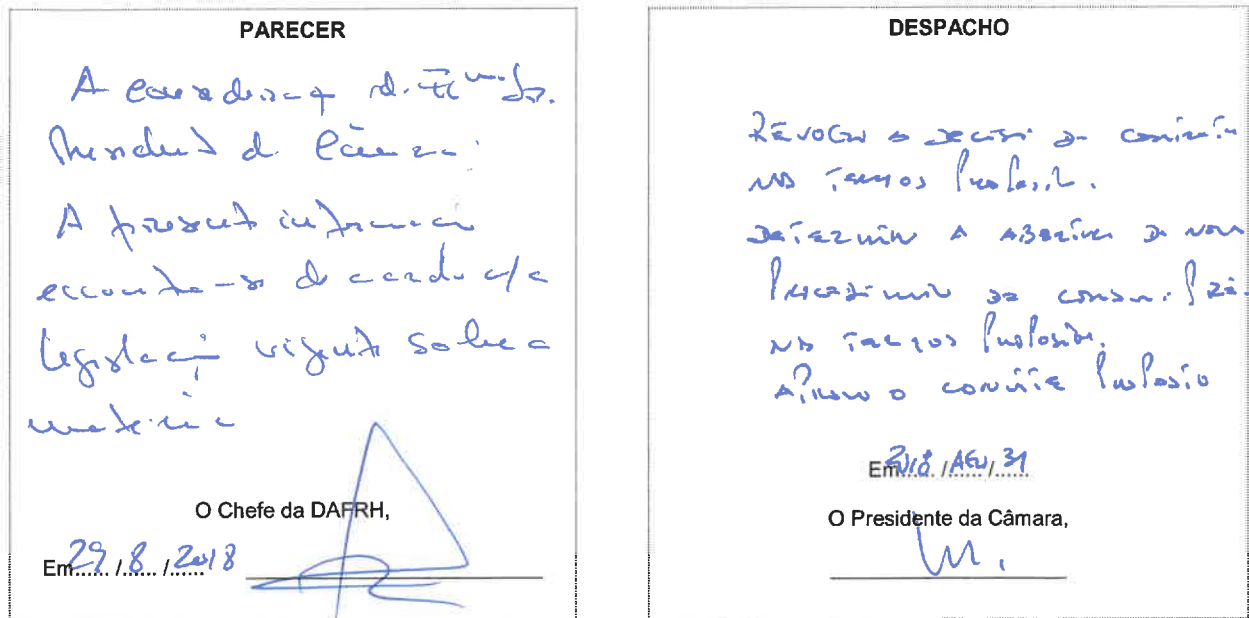 PARECER
A consideração do Exmo. Sr.
Presidente da Câmara:
A presente informação
encontra-se de acordo c/a
legislação vigente sobre a
matéria
O Chefe da DAFRH,
Em 29 / 8 / 2018
DESPACHO
REVOGO A DECISÃO DE CONTRATAR
NOS TERMOS PROPOSTOS.
DETERMINO A ABERTURA DE NOVO
PROCEDIMENTO DE CONSULTA PRÉVIA
NOS TERMOS PROPOSTOS.
APROVO O CONVITE PROPOSTO
Em 2018 / AGO / 31
O Presidente da Câmara,